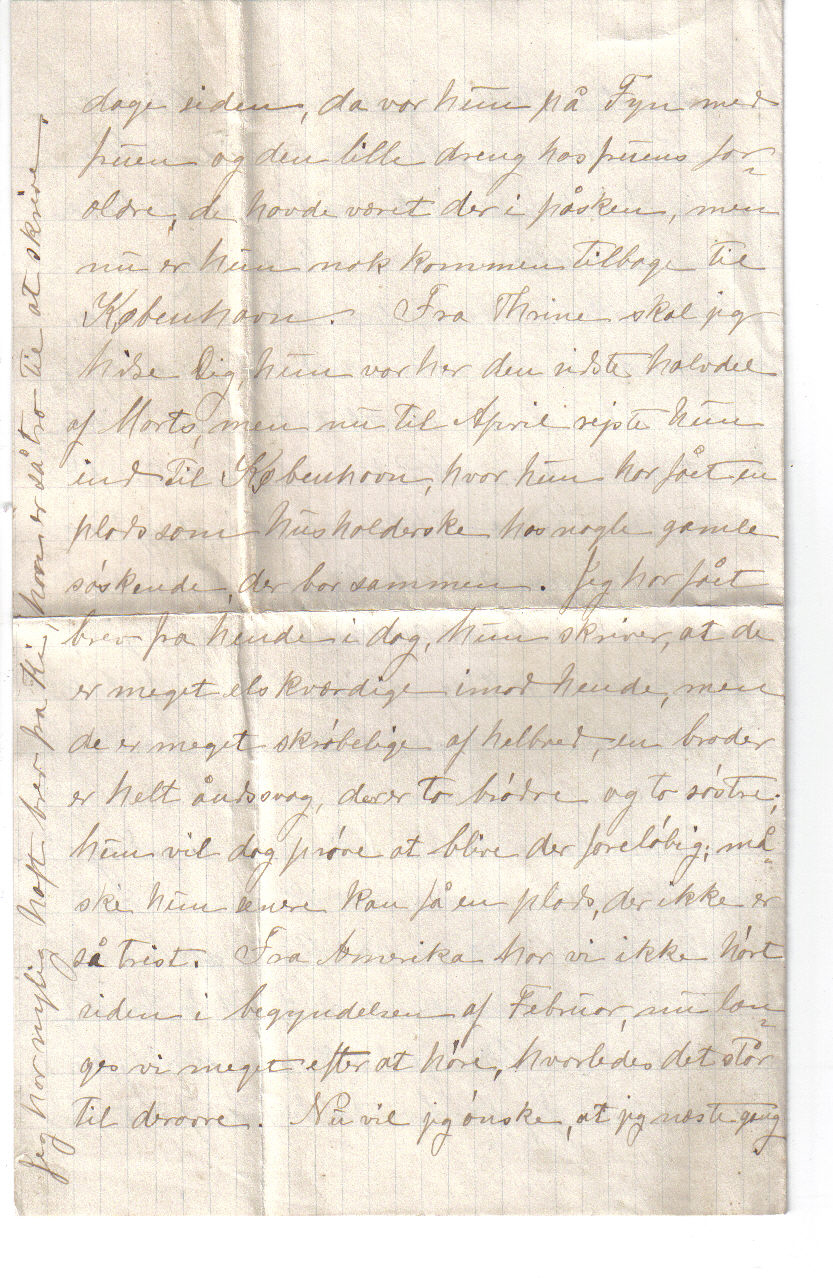 dage siden, da var hun på Fyn med
fruen og den lille dreng hos fruens for=
ældre, de havde været der i påsken, men
nu er hun nok kommen tilbage til
København. Fra Thrine skal jeg
hilse Dig, hun var her den sidste halvdel
af Marts, men nu til April rejste hun
ind til København, hvor hun har fået en
plads som husholderske hos nogle gamle
søskende, der bor sammen. Jeg har fået
brev fra hende i dag, hun skriver, at de
er meget elskværdige imod hende, men
de er meget skrøbelige af helbred, en broder
er helt åndssvag, der er to brødre og to søstre;
hun vil dog prøve at blive der foreløbig; må=
ske hun senere kan få en plads, der ikke er
så trist. Fra Amerika har vi ikke hørt
siden i begyndelsen af Februar, nu læn=
ges vi meget efter at høre, hvorledes det står
til derovre. Nu vil jeg ønske, at jeg næste gang
Jeg har nylig haft brev fra Ki, han er så tro til at skrive.